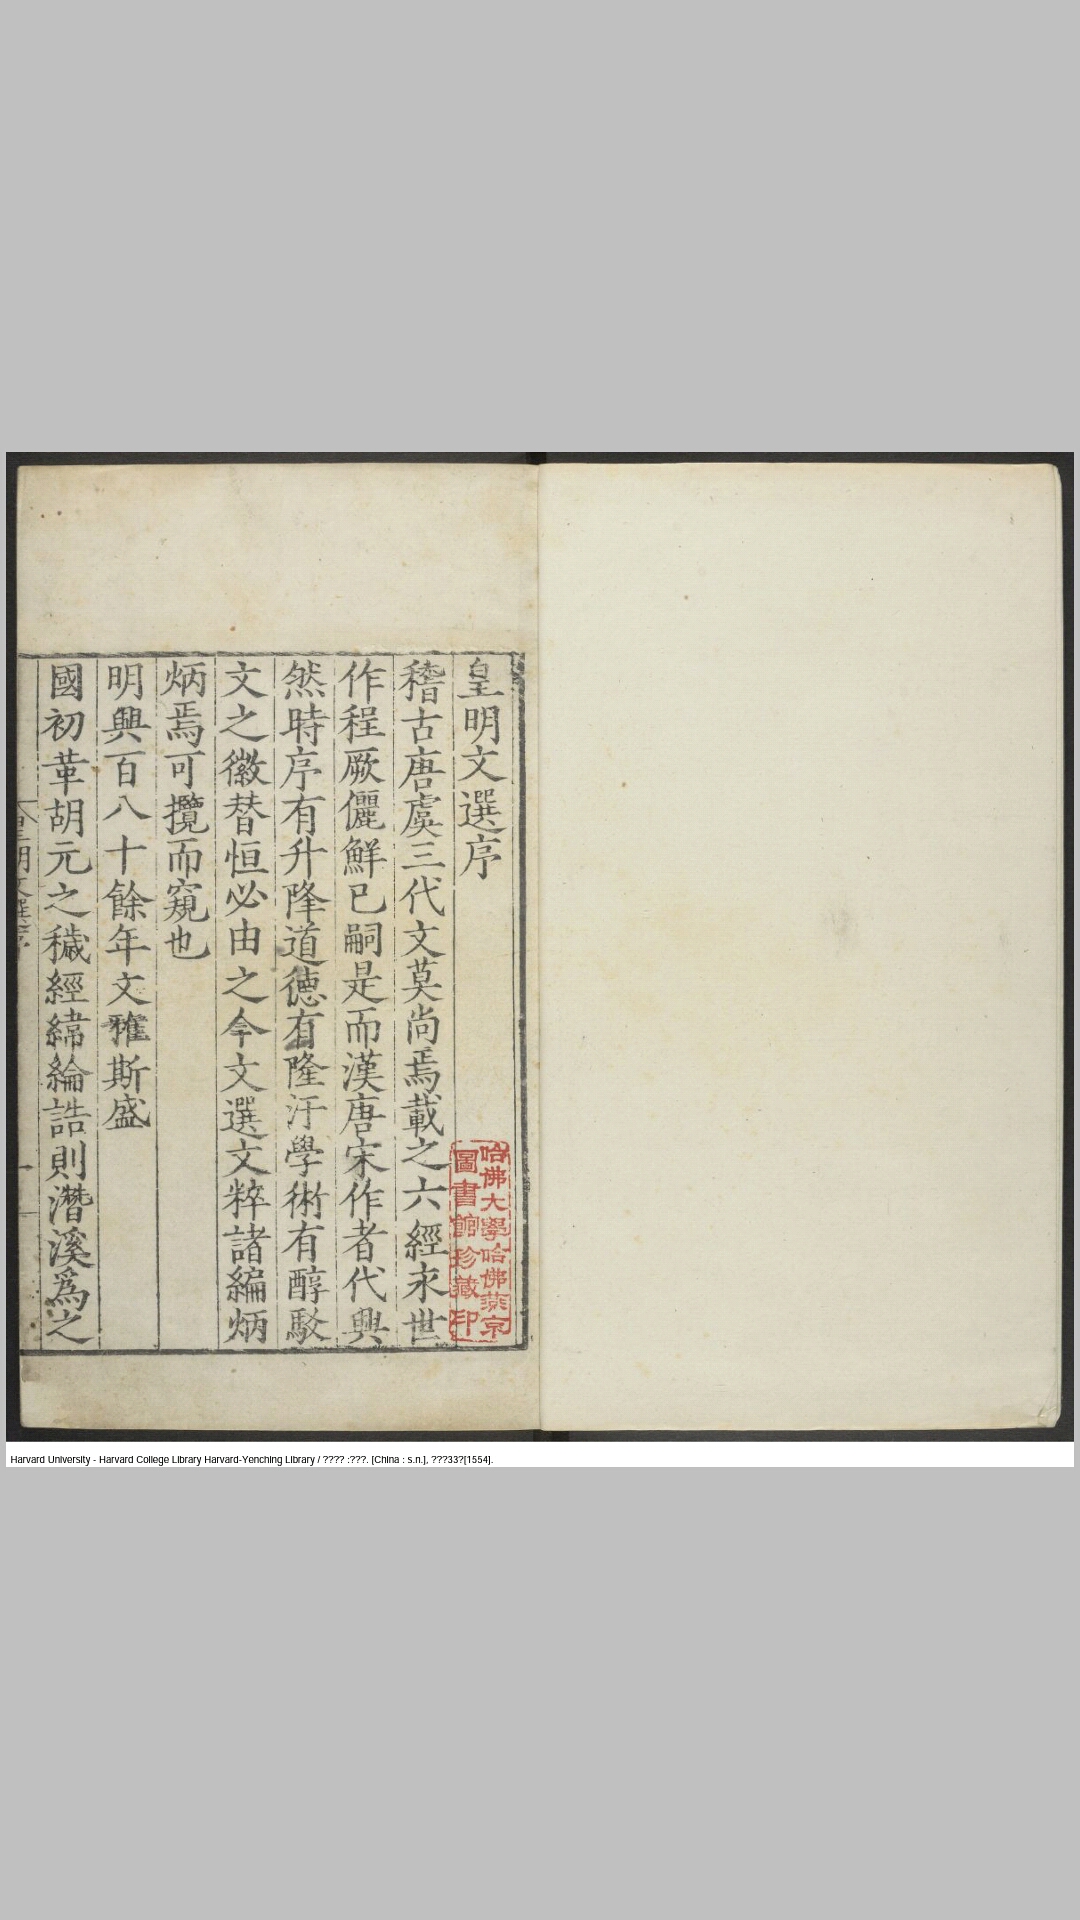 皇明文選序
稽古唐虞三代文莫尚焉載之六經永世
作程厥儷鮮已嗣是而漢唐宋作者代興
然時序有升降道德有隆汙學術有醇駁
文之徽替恒必由之今文選文粹諸編炳
炳焉可攬而窺也
明興百八十餘年文雅斯盛
國初革胡元之穢經緯綸誥則潛溪為之
哈佛大學哈佛燕京
圖書館珍藏印
Harvard University - Harvard College Library Harvard-Yenching Library / ???? :???. [China : s.n.], ???33?[1554].